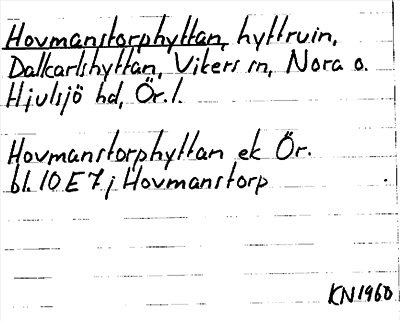 Hovmanstorphyttan, hyttruin,
Dalkarlshyttan, Vikers sn, Nora o.
Hjulsjö hd, Ör. l.
Hovmanstorphyttan ek Ör.
bl. 10 E 7 j Hovmanstorp
KN1960